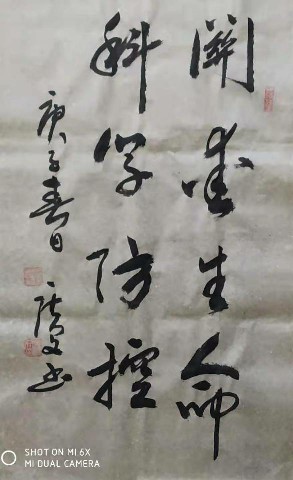 關愛生命
科学防控
庚子春日
SHOT ON MI 6X
MI DUAL CAMERA